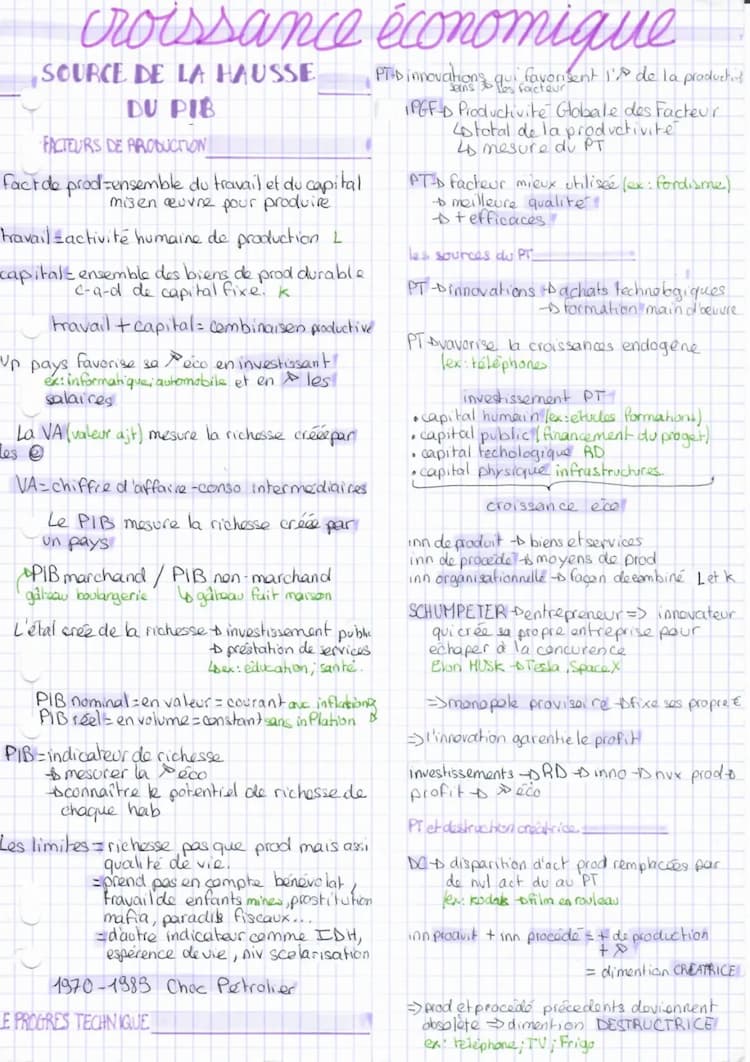 croissance économique
SOURCE DE LA HAUSSE
DU PIB
FACTEURS DE PRODUCTION
fact de prod=ensemble du travail et du capital
mis en œuvre pour produire
travail=activité humaine de production L
capital=ensemble des biens de prod durable
c-a-d de capital fixe. K
travail + capital= combinaison productive
Un pays favorise sa ↗ éco en investissant
ex: informatique, automobile et en ↗ les
salaires
La VA (valeur ajt) mesure la richesse créée par
les e
VA= chiffre d'affaire -conso intermédiaires
Le PIB mesure la richesse créée par
un pays
PIB marchand / PIB non-marchand
gâteau boulangerie ↳ gâteau fait maison
L'état crée de la richesse → investissement publ
→ préstation de services
↳ ex: éducation, santé.
PIB nominal= en valeur = courant avec inflations
PIB réel= en volume=constant sans inflation
PIB=indicateur de richesse
→ mesurer la ↗ éco
→ connaître le potentiel de richesse de
chaque hab
Les limites = richesse pas que prod mais assi
qualité de vie.
= prend pas en compte bénévolat,
travail de enfants mines, prostitution
mafia, paradis fiscaux...
= d'autre indicateur comme IDH,
espérence de vie, niv scolarisation
1970-1985 Choc Pétrolier
LE PROGRES TECHNIQUE
PT→ innovations qui favorisent l'↗ de la productivit
sans ↗ les facteur
PGF→ Productivité Globale des Facteur
↳ total de la productivité
↳ mesure du PT
PT→ facteur mieux utilisée (ex: fordisme)
→ meilleure qualité
→ + efficaces
les sources du PT
PT → innovations → achats technologiques
→ formation main d'œuvre
PT → vavorise la croissances endogène
(ex: téléphones
investissement PT
• capital humain (ex: études formations)
• capital public (financement du proget)
• capital techologique RD
• capital physique infrastructures.
croissance éco
inn de produit → biens et services
inn de procédé → moyens de prod
inn organisationnelle → façon de combiné L et K
SCHUMPETER → entrepreneur => innovateur
qui crée sa propre entreprise pour
échaper à la concurence
Elon MUSK → Tesla, SpaceX
=> monopole provisoire → fixe ses propre €
=> l'innovation garentie le profit
investissements → RD → inno → nvx prod →
profit → ↗ éco
PT et destruction créatrice
DC → disparition d'act prod remplacées par
de nvl act du au PT
(ex: kodak → film en rouleau
inn produit + inn procédé = + de production
+ ↗
= dimention CREATRICE
=> prod et procédé précedents deviennent
obsolète => dimention DESTRUCTRICE
ex: téléphone; TV; Frigo